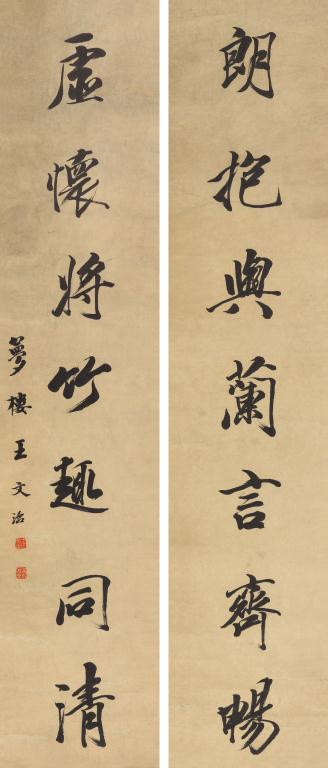 朗抱與蘭言齊暢
虛懷將竹趣同清
夢樓王文治